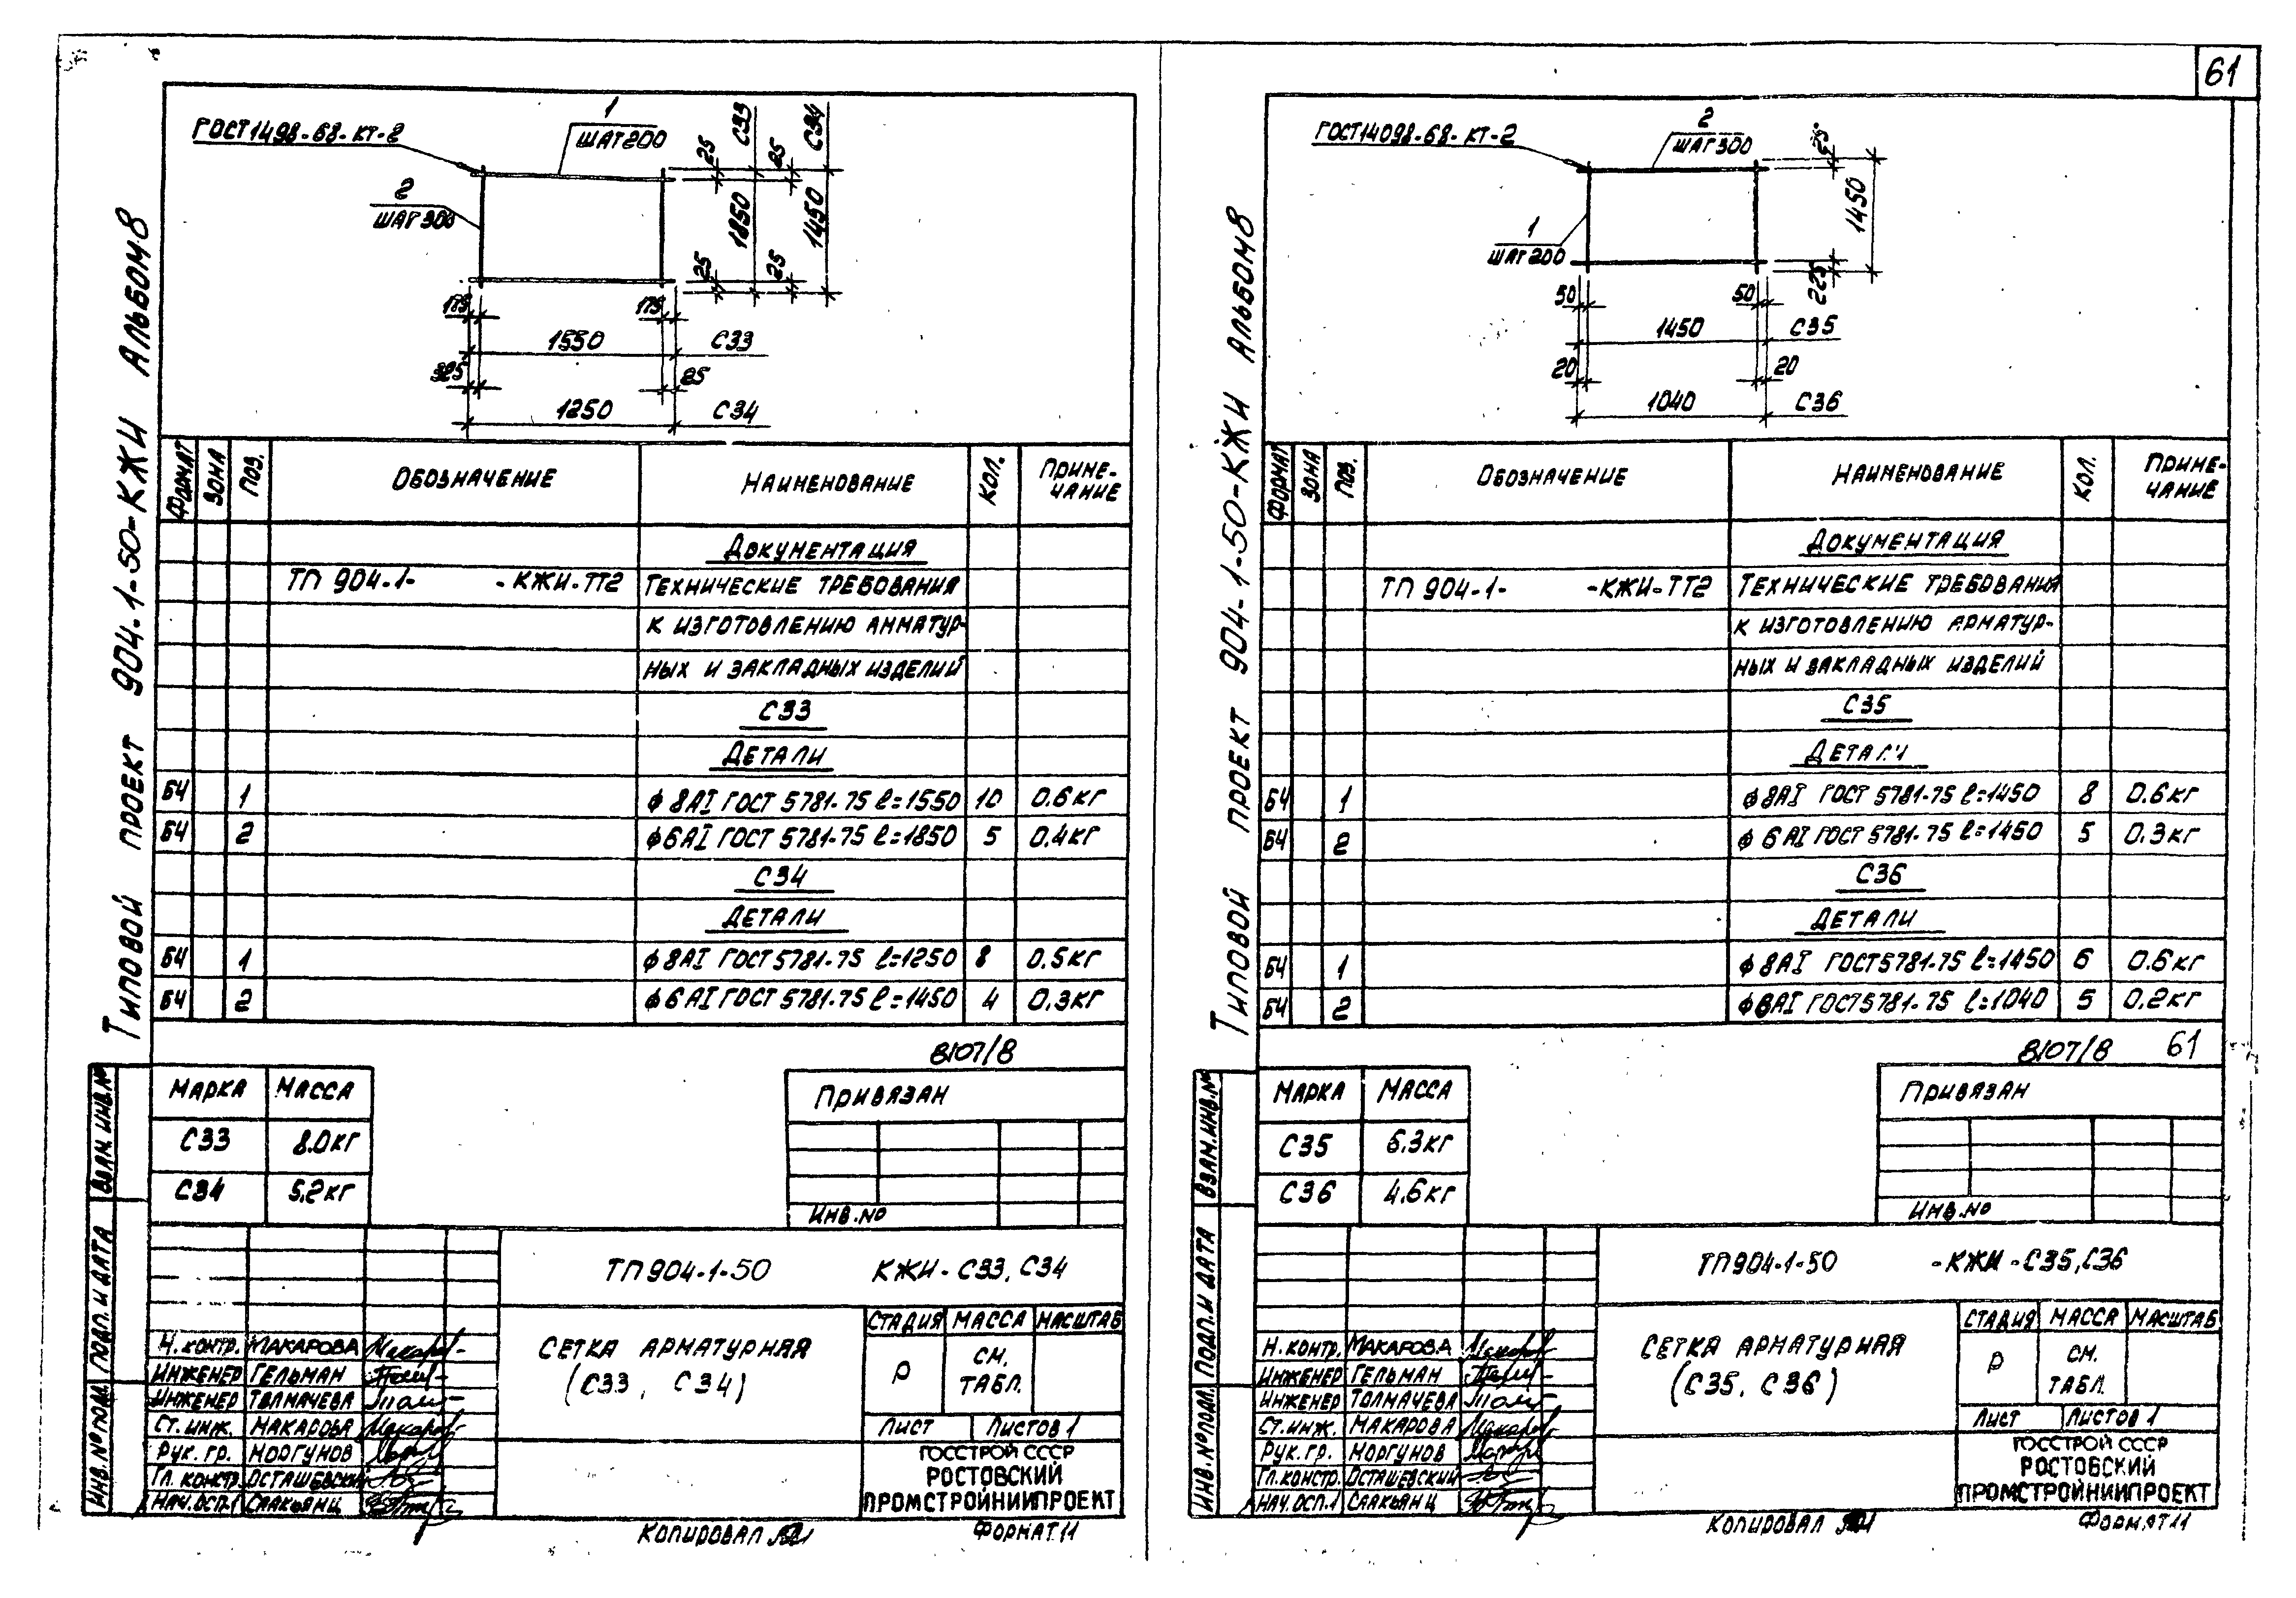 61
Типовой проект 904-1-50-КЖИ Альбом 8
ГОСТ 1498-68-КТ-2
1
ШАГ 200
2
ШАГ 300
25
С33
25
С34
1850
1450
25
25
175
175
1550
С33
325
25
1250
С34
Формат
Зона
Поз.
Обозначение
Наименование
Кол.
Приме-
чание
Документация
ТП 904-1- -КЖИ-ТТ2 Технические требования
к изготовлению анматур-
ных и закладных изделий
С33
Детали
БЧ 1 ϕ8АI ГОСТ 5781-75 ℓ=1550 10 0.6кг
БЧ 2 ϕ6АI ГОСТ 5781-75 ℓ=1850 5 0.4кг
С34
Детали
БЧ 1 ϕ8АI ГОСТ 5781-75 ℓ=1250 8 0.5кг
БЧ 2 ϕ6АI ГОСТ 5781-75 ℓ=1450 4 0.3кг
8107/8
Марка Масса
С33 8.0кг
С34 5.2кг
Привязан
Инв.№
Взам. инв.№
Подп. и дата
Инв.№ подл.
ТП 904-1-50 КЖИ-С33, С34
Н.контр. Макарова
Инженер Гельман
Инженер Толмачева
Ст.инж. Макарова
Рук. гр. Моргунов
Гл. констр. Осташевский
Нач.осп.1 Слакьянц
Сетка арматурная
(С33, С34)
Стадия Масса Масштаб
Р
см.
табл.
Лист Листов 1
ГОССТРОЙ СССР
РОСТОВСКИЙ
ПРОМСТРОЙНИИПРОЕКТ
Копировал
Формат 11
Типовой проект 904-1-50-КЖИ Альбом 8
ГОСТ 14098-68-КТ-2
2
ШАГ 300
1
ШАГ 200
25
1450
225
50
50
1450
С35
20
20
1040
С36
Формат
Зона
Поз.
Обозначение
Наименование
Кол.
Приме-
чание
Документация
ТП 904-1- -КЖИ-ТТ2 Технические требования
к изготовлению арматур-
ных и закладных изделий
С35
Детали
БЧ 1 ϕ8АI ГОСТ 5781-75 ℓ=1450 8 0.6кг
БЧ 2 ϕ6АI ГОСТ 5781-75 ℓ=1450 5 0.3кг
С36
Детали
БЧ 1 ϕ8АI ГОСТ 5781-75 ℓ=1450 6 0.6кг
БЧ 2 ϕ6АI ГОСТ 5781-75 ℓ=1040 5 0.2кг
8107/8 61
Марка Масса
С35 6.3кг
С36 4.6кг
Привязан
Инв.№
Взам.инв.№
Подп. и дата
Инв.№ подл.
ТП 904-1-50 -КЖИ-С35,С36
Н.контр. Макарова
Инженер Гельман
Инженер Толмачева
Ст.инж. Макарова
Рук. гр. Моргунов
Гл.констр. Осташевский
Нач.осп.1 Слакьянц
Сетка арматурная
(С35, С36)
Стадия Масса Масштаб
Р
см.
табл.
Лист Листов 1
ГОССТРОЙ СССР
РОСТОВСКИЙ
ПРОМСТРОЙНИИПРОЕКТ
Копировал
Формат 11